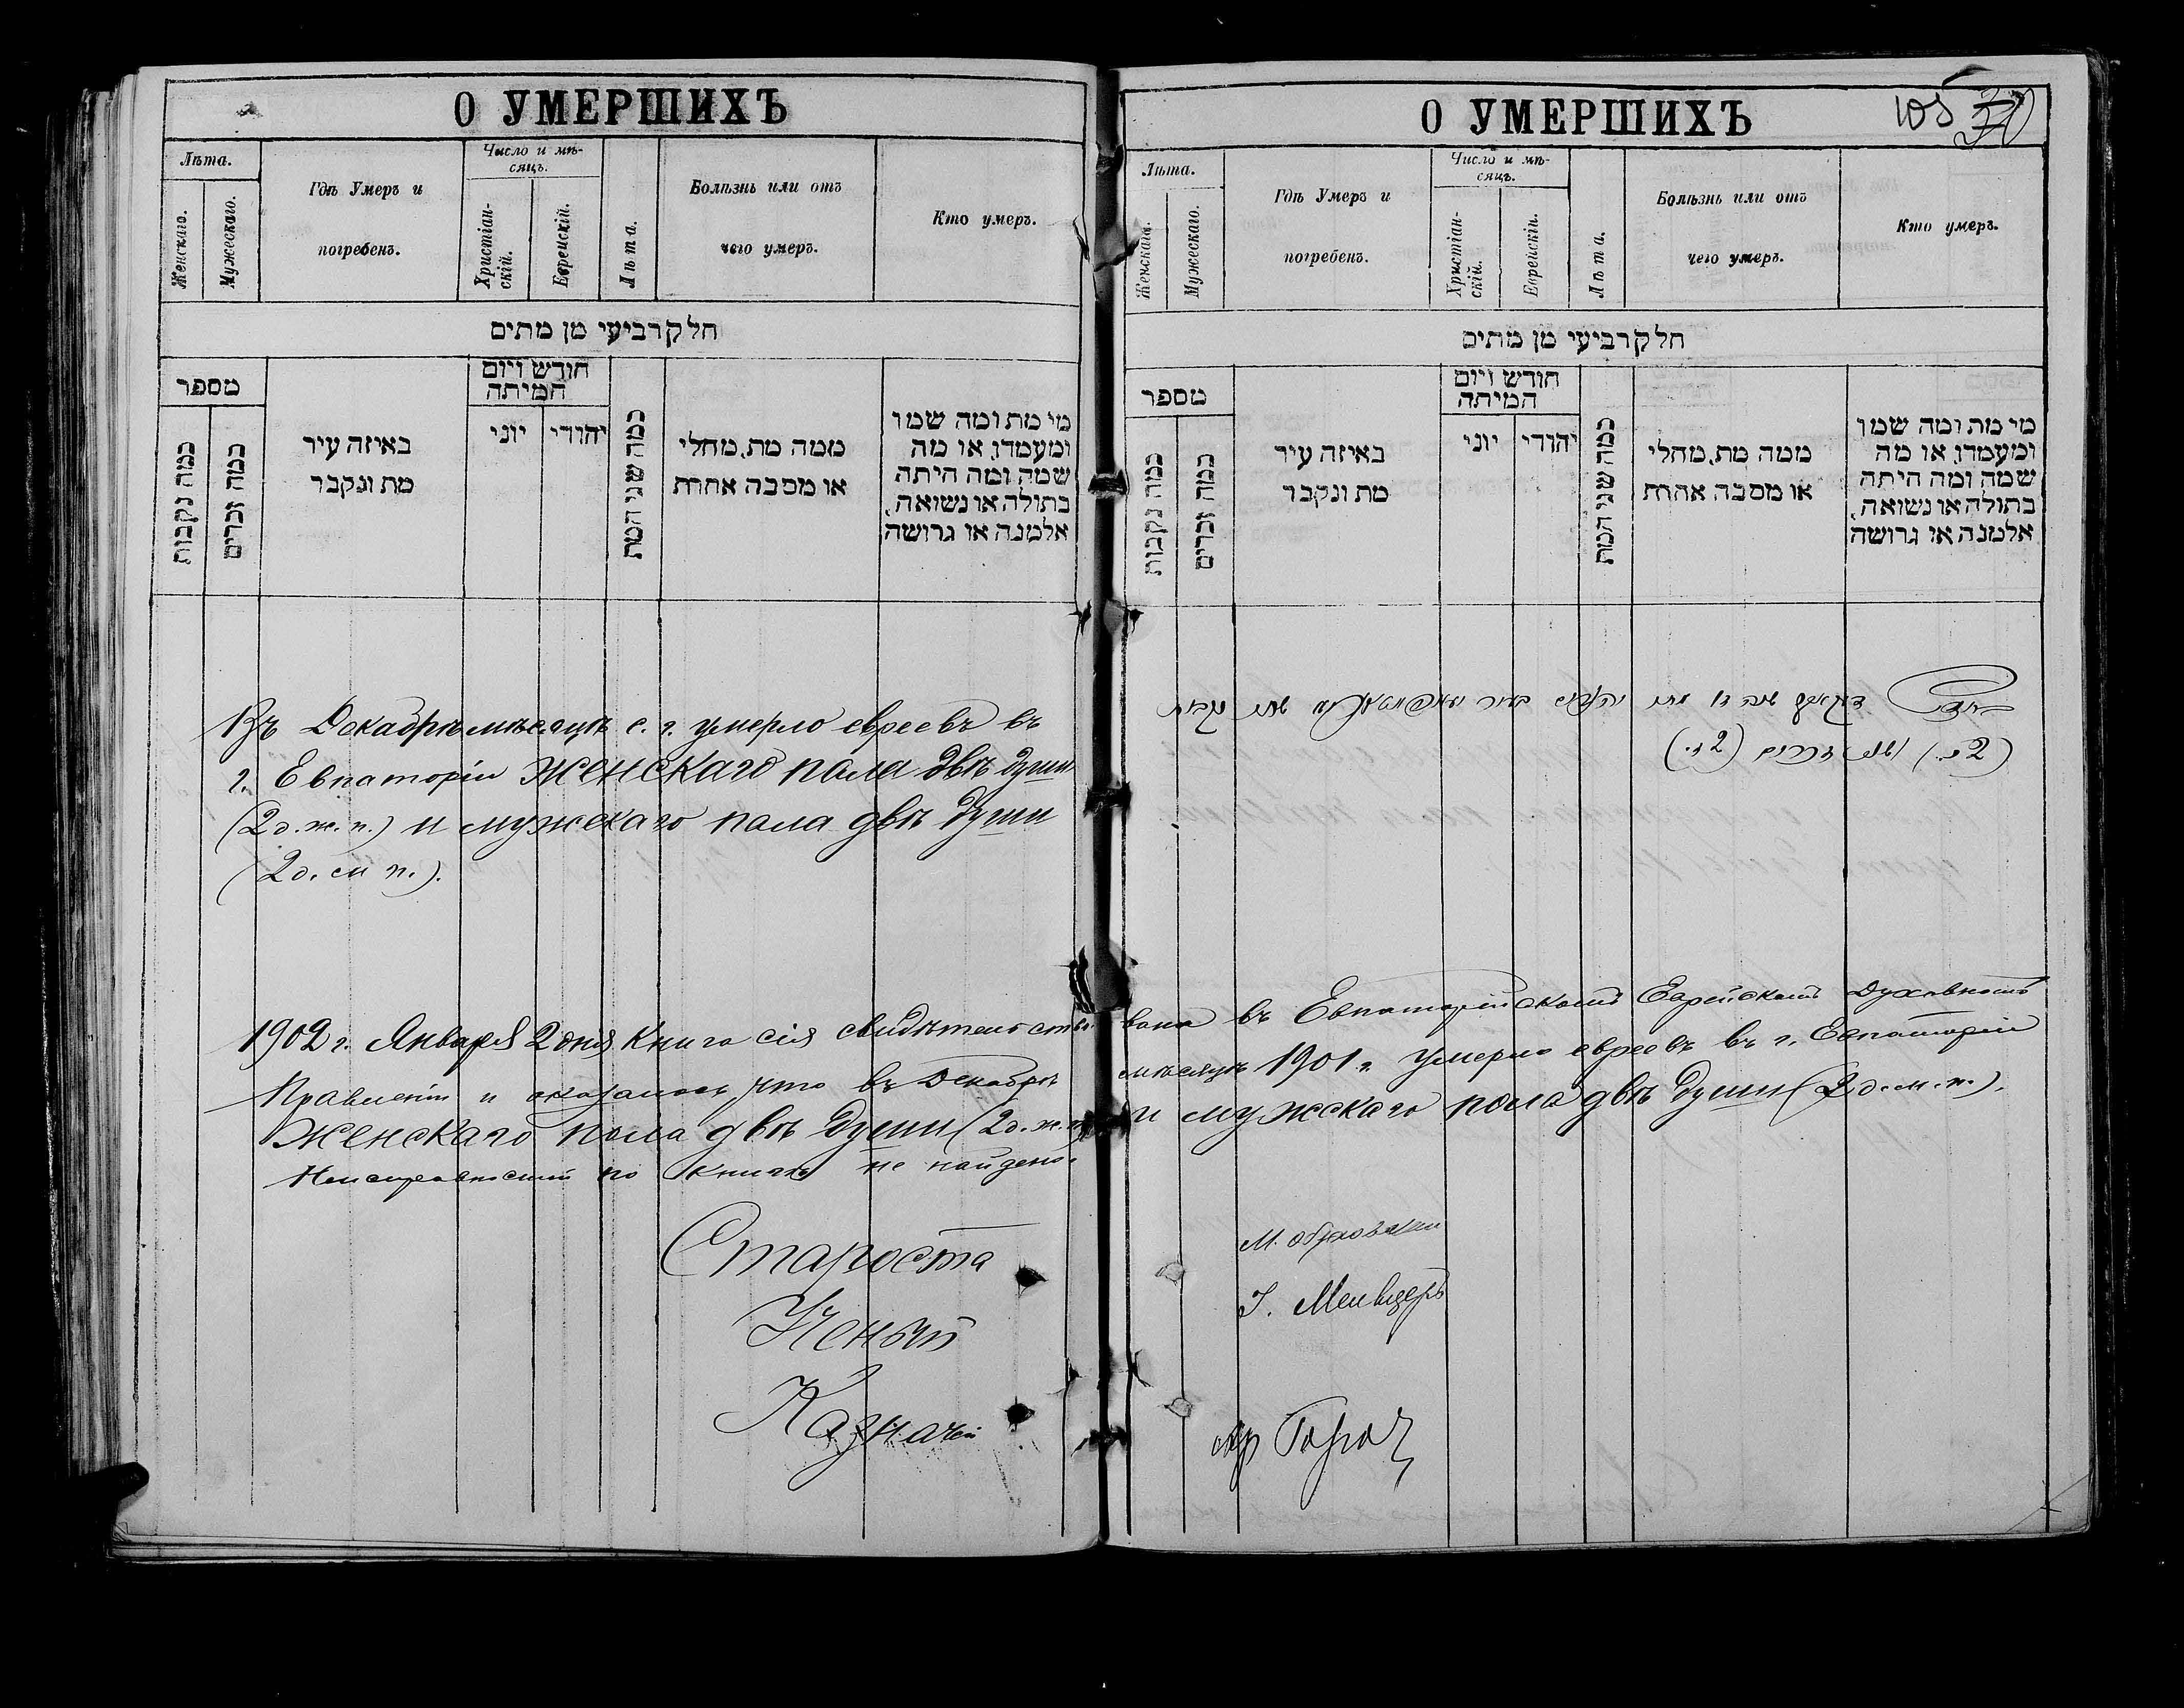 О УМЕРШИХЪ
Лѣта.
Женскаго.
Мужескаго.
Гдѣ Умеръ и
погребенъ.
Число и мѣ-
сяцъ.
Христіан-
скій.
Еврейскій.
Лѣта.
Болѣзнь или отъ
чего умеръ.
Кто умеръ.
חלק רביעי מן מתים
מספר
כמה נקבות
כמה זכרים
באיזה עיר
מת ונקבר
חודש ויום
המיתה
יוני
יהודי
כמה שני המת
ממה מת, מחלי
או מסבה אחרת
מי מת ומה שמו
ומעמדו, או מה
שמה ומה היתה
בתולה או נשואה,
אלמנה או גרושה
Въ Декабрѣ мѣсяцѣ с. г. умерло евреевъ въ
г. Евпаторіи женскаго пола двѣ души
(2 д. ж. п.) и мужскаго пола двѣ души
(2 д. м п.).
1902 г. Января 2 дня Книга сія свидѣтельство-
Правленіи и оказалось что въ Декабрѣ
женскаго пола двѣ души (2 д. ж. п.)
Неисправностей по книгѣ не найдено.
Староста
Ученый
Казначей
О УМЕРШИХЪ
105
Лѣта.
Женскаго.
Мужескаго.
Гдѣ Умеръ и
погребенъ.
Число и мѣ-
сяцъ.
Христіан-
скій.
Еврейскій.
Лѣта.
Болѣзнь или отъ
чего умеръ.
Кто умеръ.
חלק רביעי מן מתים
מספר
כמה נקבות
כמה זכרים
באיזה עיר
מת ונקבר
חודש ויום
המיתה
יוני
יהודי
כמה שני המת
ממה מת, מחלי
או מסבה אחרת
מי מת ומה שמו
ומעמדו, או מה
שמה ומה היתה
בתולה או נשואה,
אלמנה או גרושה
בחדש דקאבר שנה זו מתו יהודים בעיר שתי נקבות
(2 נ.) ושני זכרים (2 ז.)
вана въ Евпаторійскомъ Еврейскомъ Духовномъ
мѣсяцѣ 1901 г. умерло евреевъ въ г. Евпаторіи
и мужскаго пола двѣ души (2 д. м. п.).
М.